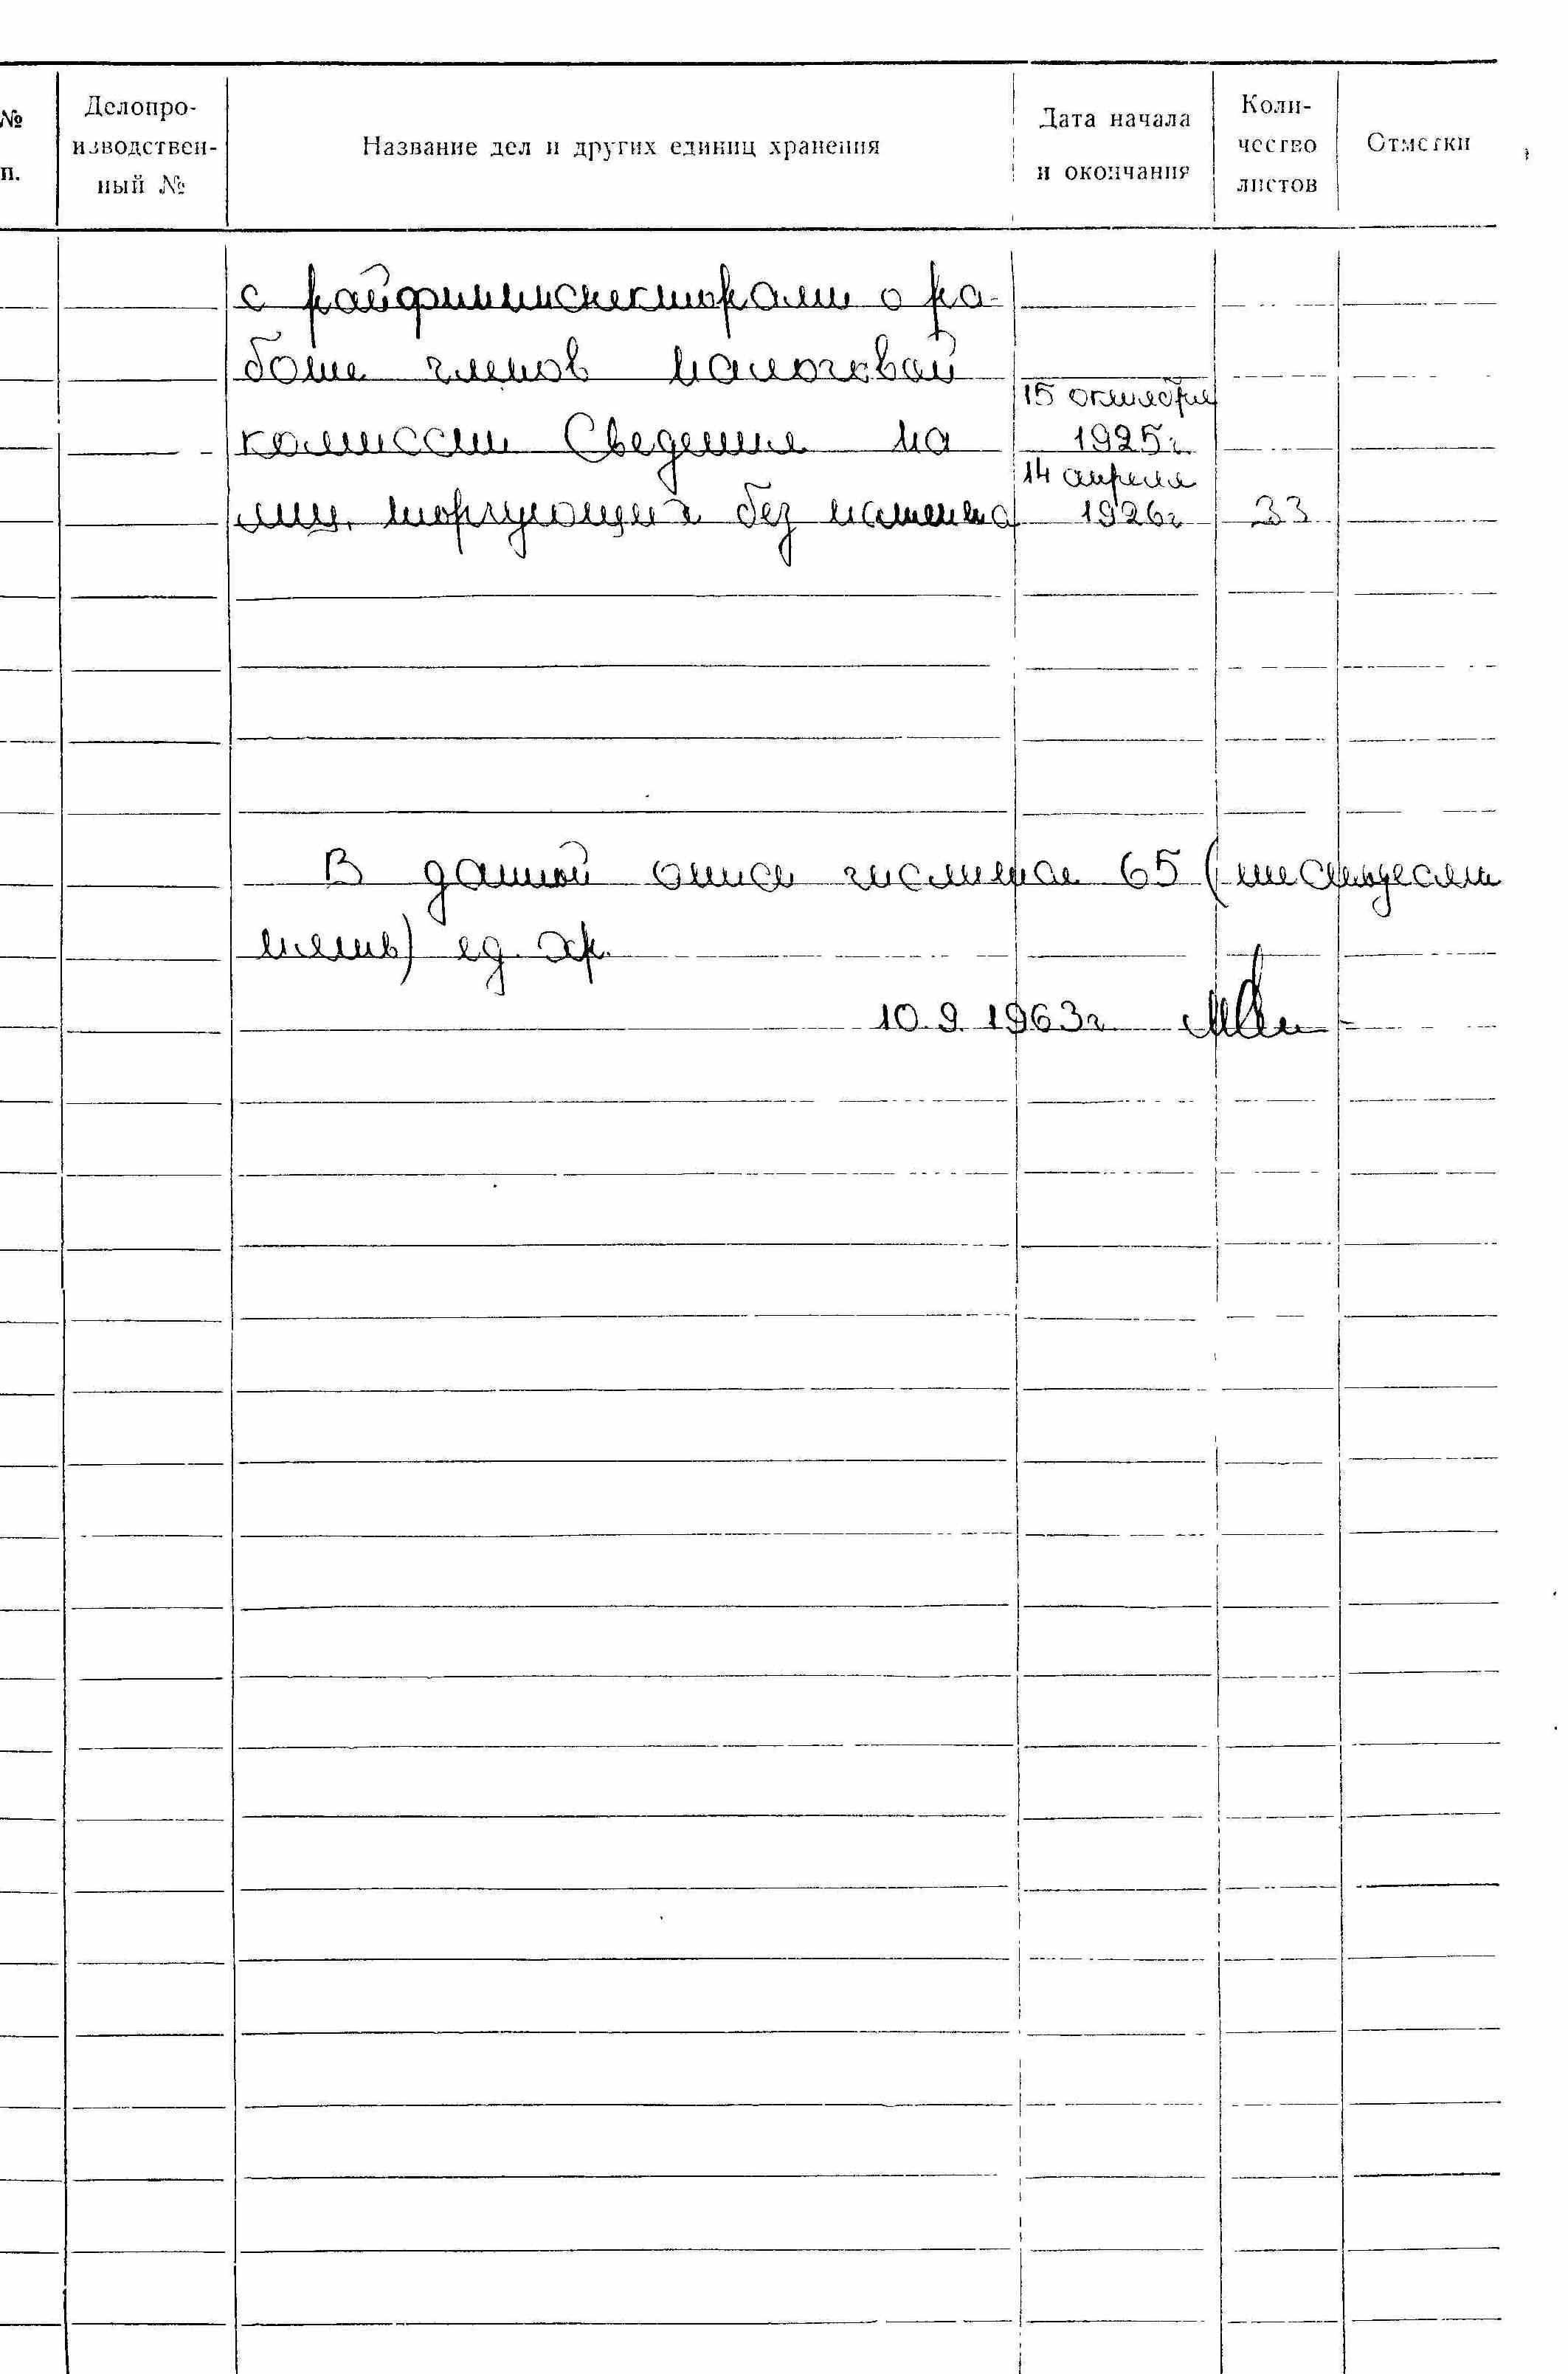 №
п.
Делопро-
изводствен-
ный №
Название дел и других единиц хранения
Дата начала
и окончания
Коли-
чество
листов
Отметки
с райфининспекторами о ра-
боте членов налоговой
15 октября
комиссии Сведения на
1925г.
14 апреля
лиц, торгующих без патента
1926г
33
В данной описи числится 65 (шестьдесят
пять) ед. хр.
10.9.1963г